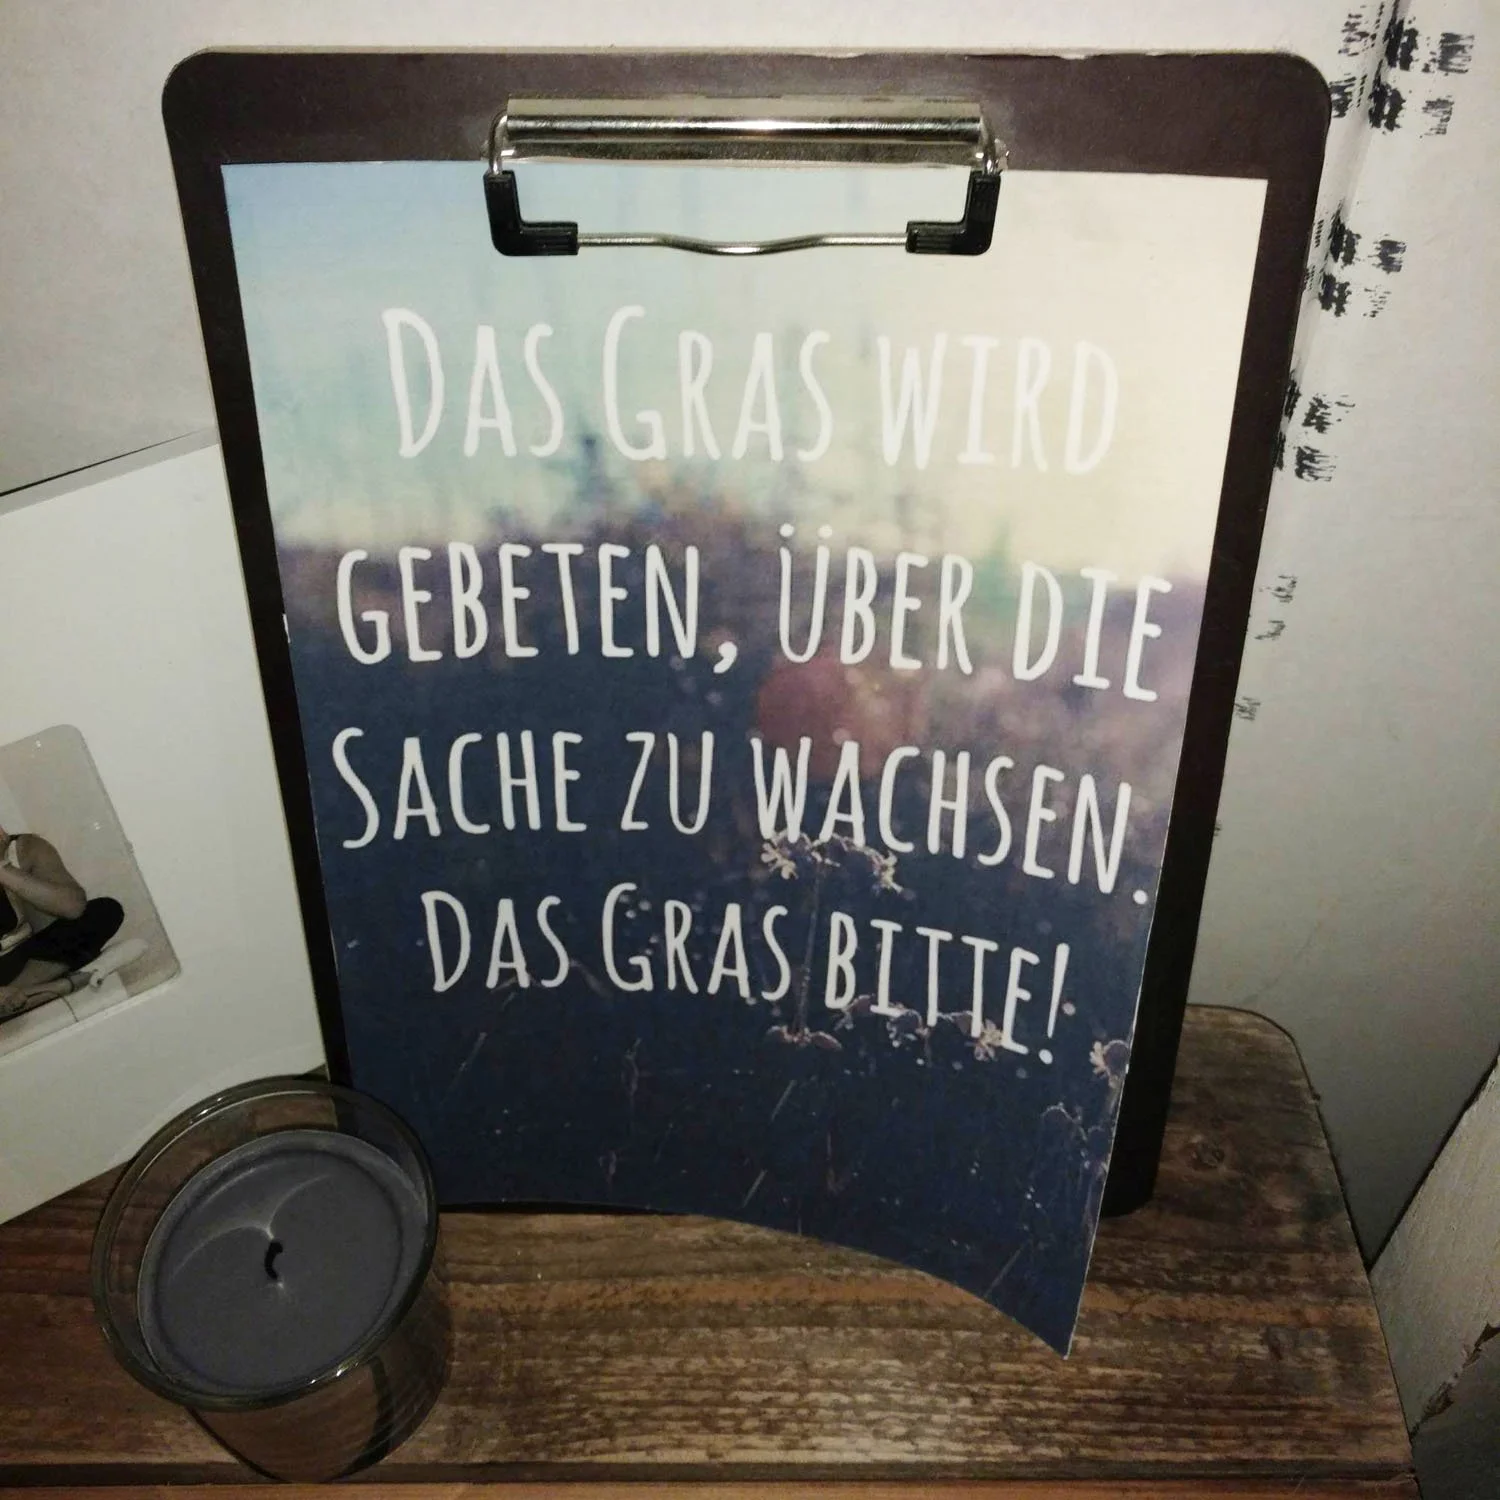 Das Gras wird
gebeten, über die
Sache zu wachsen.
Das Gras bitte!